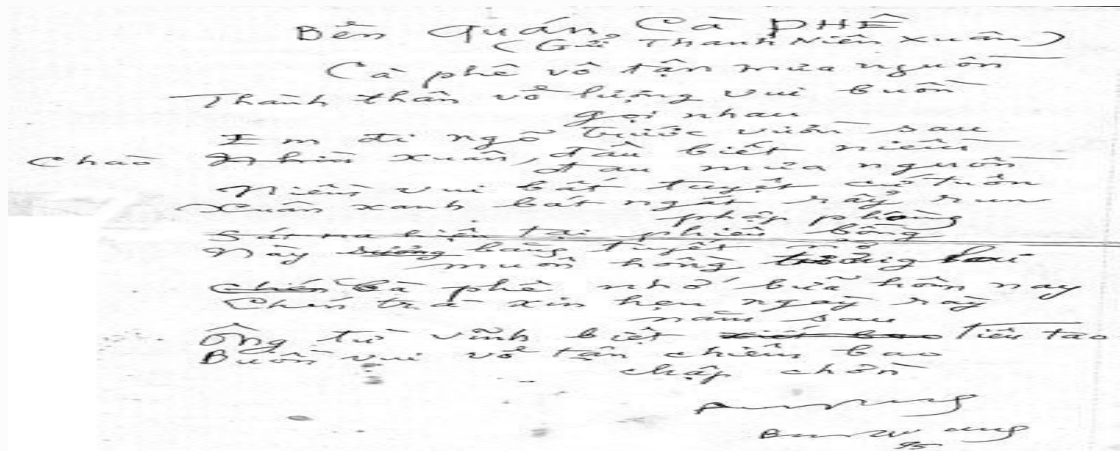 Bên Quán Cà PHÊ
(Gửi Thanh Niên Xuân)
Cà phê vô tận mưa nguồn
Thành thân vô lượng vui buồn
gọi nhau
Em đi ngõ trước vườn sau
Chào xuân, đâu biết niềm
đau mưa nguồn
Niềm vui bất tuyệt cứ tuôn
Xuân xanh bát ngát rẫy run
phập phồng
Sát na hiện tại phiêu bồng
Này băng tuyết
muôn hồng
cà phê nhớ bữa hôm nay
Chén trà xin hẹn ngày rày
năm sau
Ông từ vĩnh biệt tiêu tao
Buồn vui vô tận chiêm bao
chập chờn
95